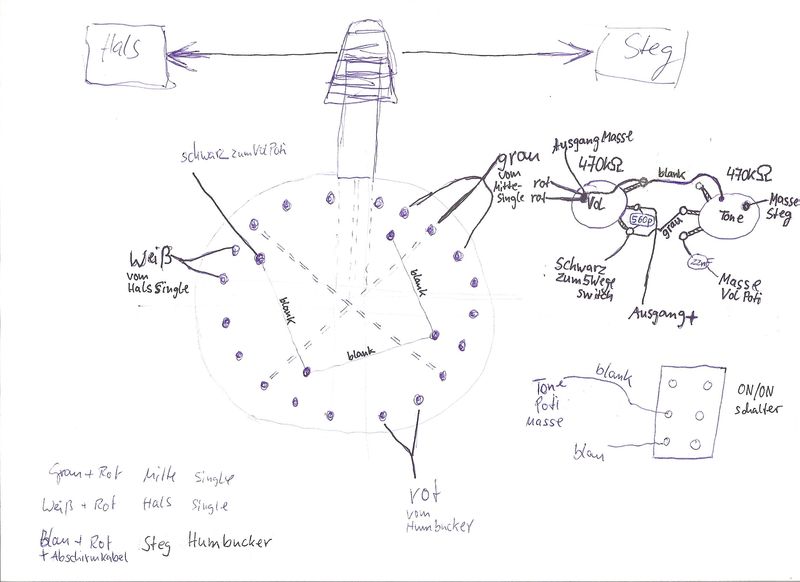 Hals
Steg
schwarz zum Vol Poti
grau
vom
Mitte-
Single
Weiß
vom
Hals Single
blank
blank
blank
rot
vom
Humbucker
Ausgang Masse
470kΩ
rot
rot
Vol
blank
470kΩ
Tone
Masse
Steg
560p
grau
22nF
Schwarz
zum 5 Wege
switch
Masse
Vol Poti
Ausgang +
Tone
Poti
Masse
blank
blau
ON/ON
schalter
Grau + Rot Mitte Single
Weiß + Rot Hals Single
Blau + Rot Steg Humbucker
+ Abschirmkabel